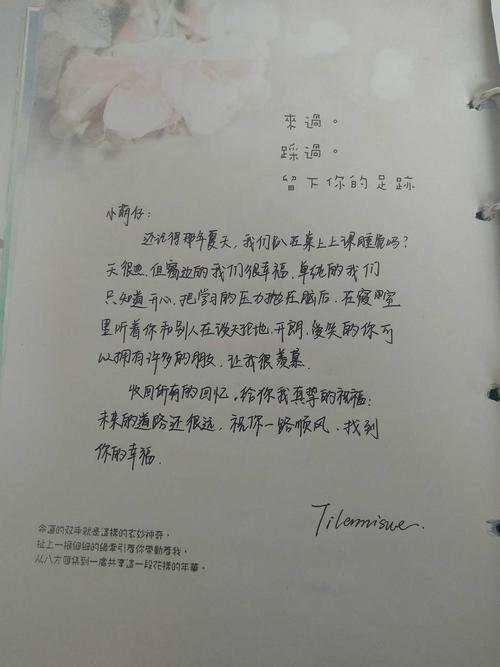 來過。
踩過。
留下你的足跡
小萌仔:
还记得那年夏天,我们趴在桌上上课睡觉吗?
天很热,但窗边的我们很幸福,单纯的我们
只知道开心,把学习的压力抛在脑后,在寝室
里听着你和别人在谈天说地,开朗,爱笑的你可
以拥有许多的朋友,让我很羡慕.
收回所有的回忆,给你我真挚的祝福:
未来的道路还很远,祝你一路顺风,找到
你的幸福.
命運的双手就是這樣的玄妙神奇,
扯上一根細細的線牽引着你帶動着我,
从八方匯集到一處共享這一段花樣的年華。